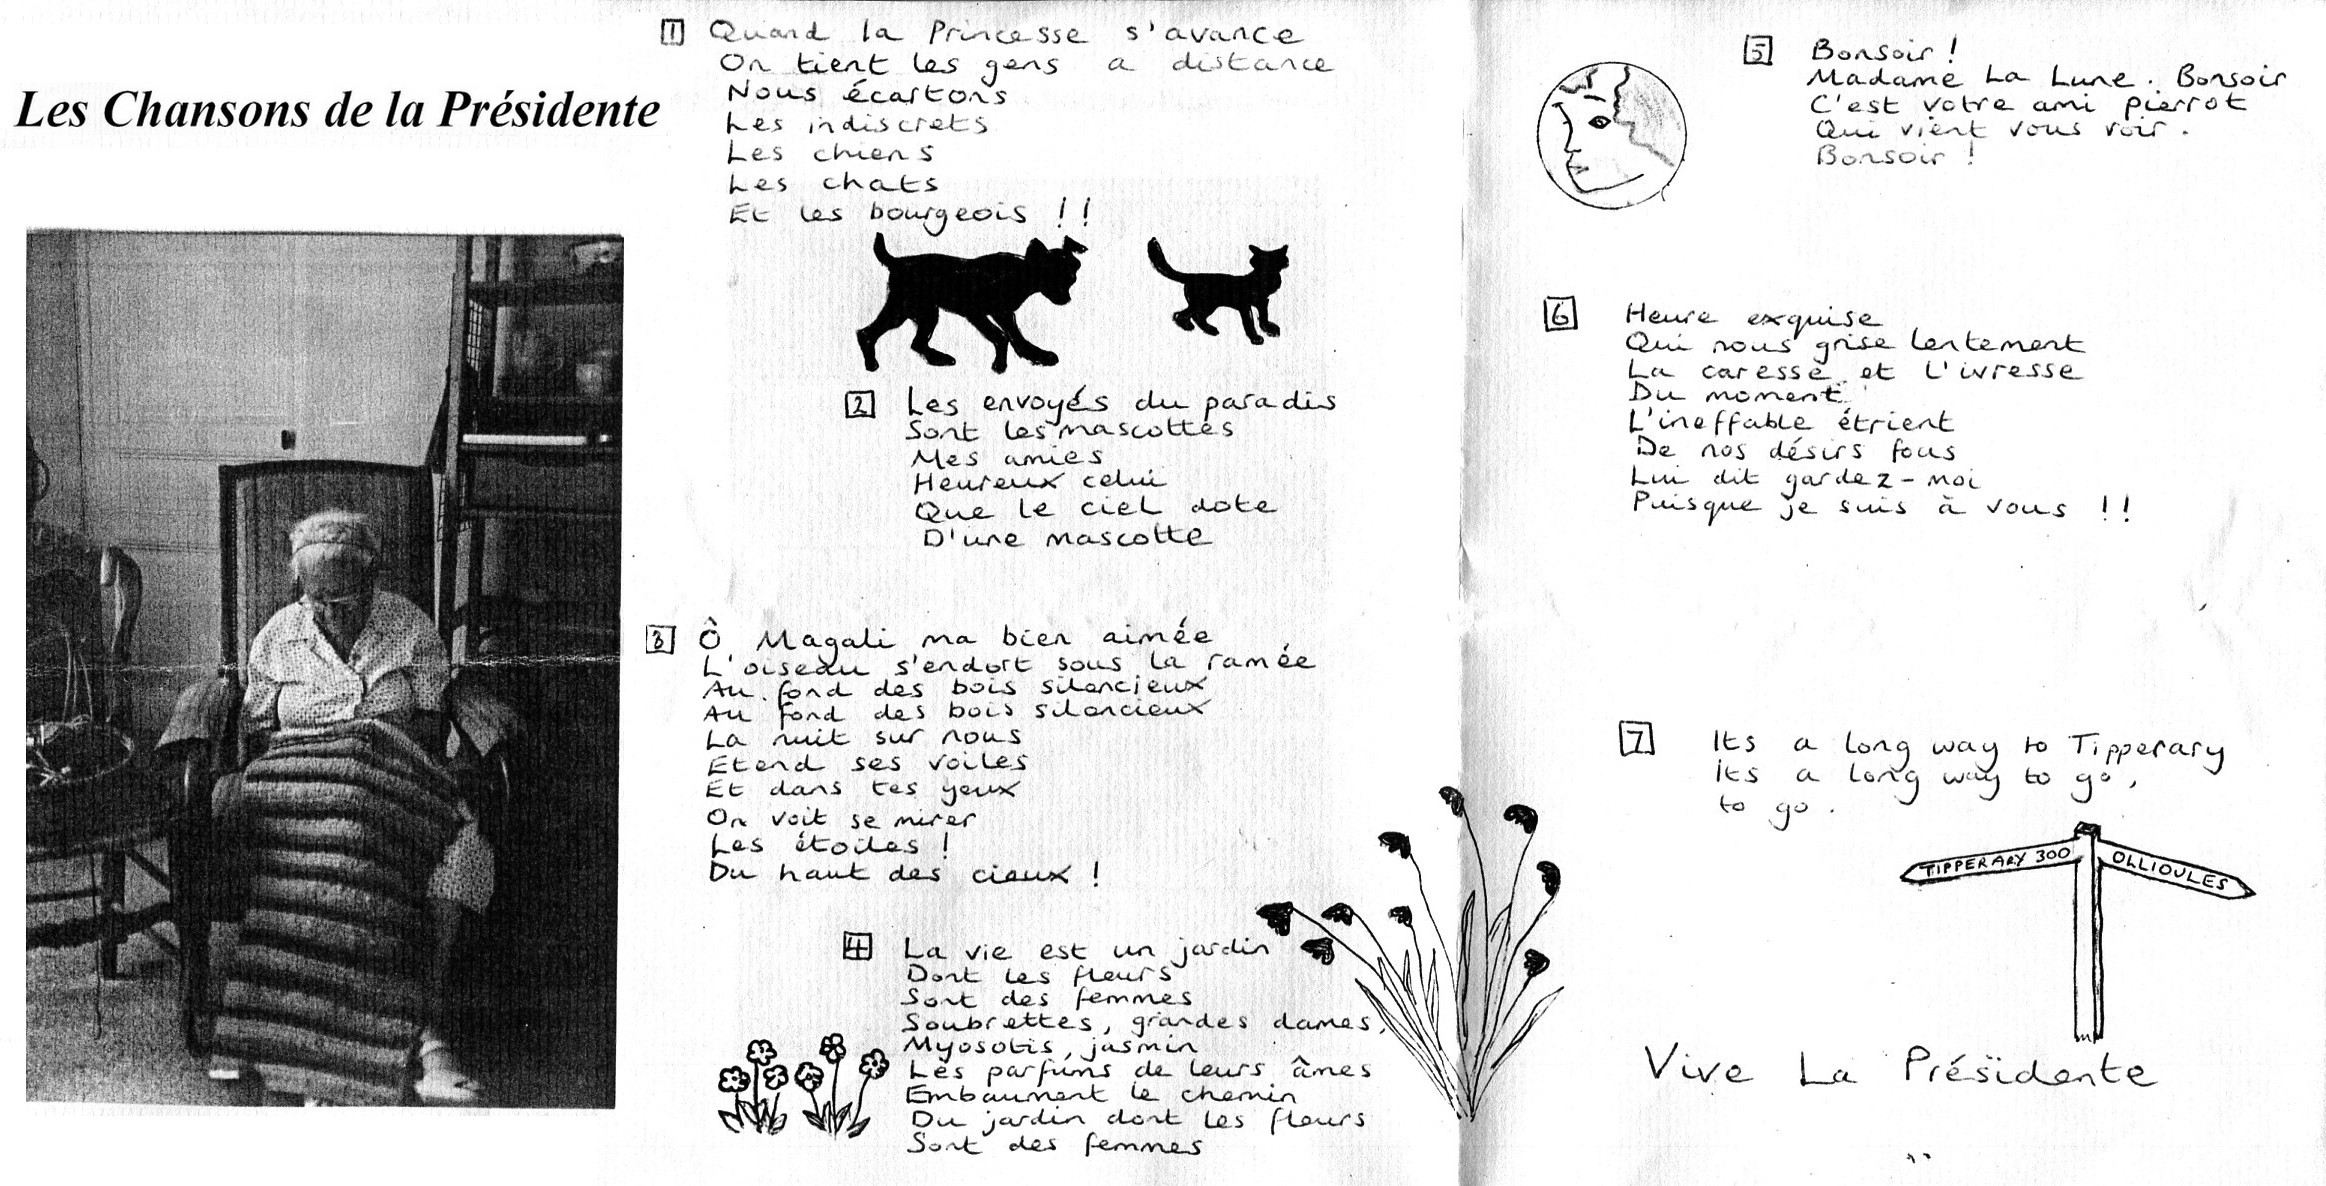 Les Chansons de la Présidente
1 Quand la Princesse s'avance
On tient les gens a distance
Nous écartons
Les indiscrets
Les chiens
Les chats
Et les bourgeois !!
2 Les envoyés du paradis
Sont les mascottes
Mes amies
Heureux celui
Que le ciel dote
D'une mascotte
3 Ô Magali ma bien aimée
L'oiseau s'endort sous la ramée
Au fond des bois silencieux
Au fond des bois silencieux
La nuit sur nous
Etend ses voiles
Et dans tes yeux
On voit se mirer
Les étoiles !
Du haut des cieux !
4 La vie est un jardin
Dont les fleurs
Sont des femmes
Soubrettes, grandes dames,
Myosotis, jasmin
Les parfums de leurs âmes
Embaument le chemin
Du jardin dont les fleurs
Sont des femmes
5 Bonsoir !
Madame La Lune. Bonsoir
C'est votre ami pierrot
Qui vient vous voir.
Bonsoir !
6 Heure exquise
Qui nous grise lentement
La caresse et l'ivresse
Du moment
L'ineffable étrient
De nos désirs fous
Lui dit gardez-moi
Puisque je suis à vous !!
7 Its a long way to Tipperary
its a long way to go,
to go.
TIPPERARY 300
OLLIOULES
Vive La Présidente